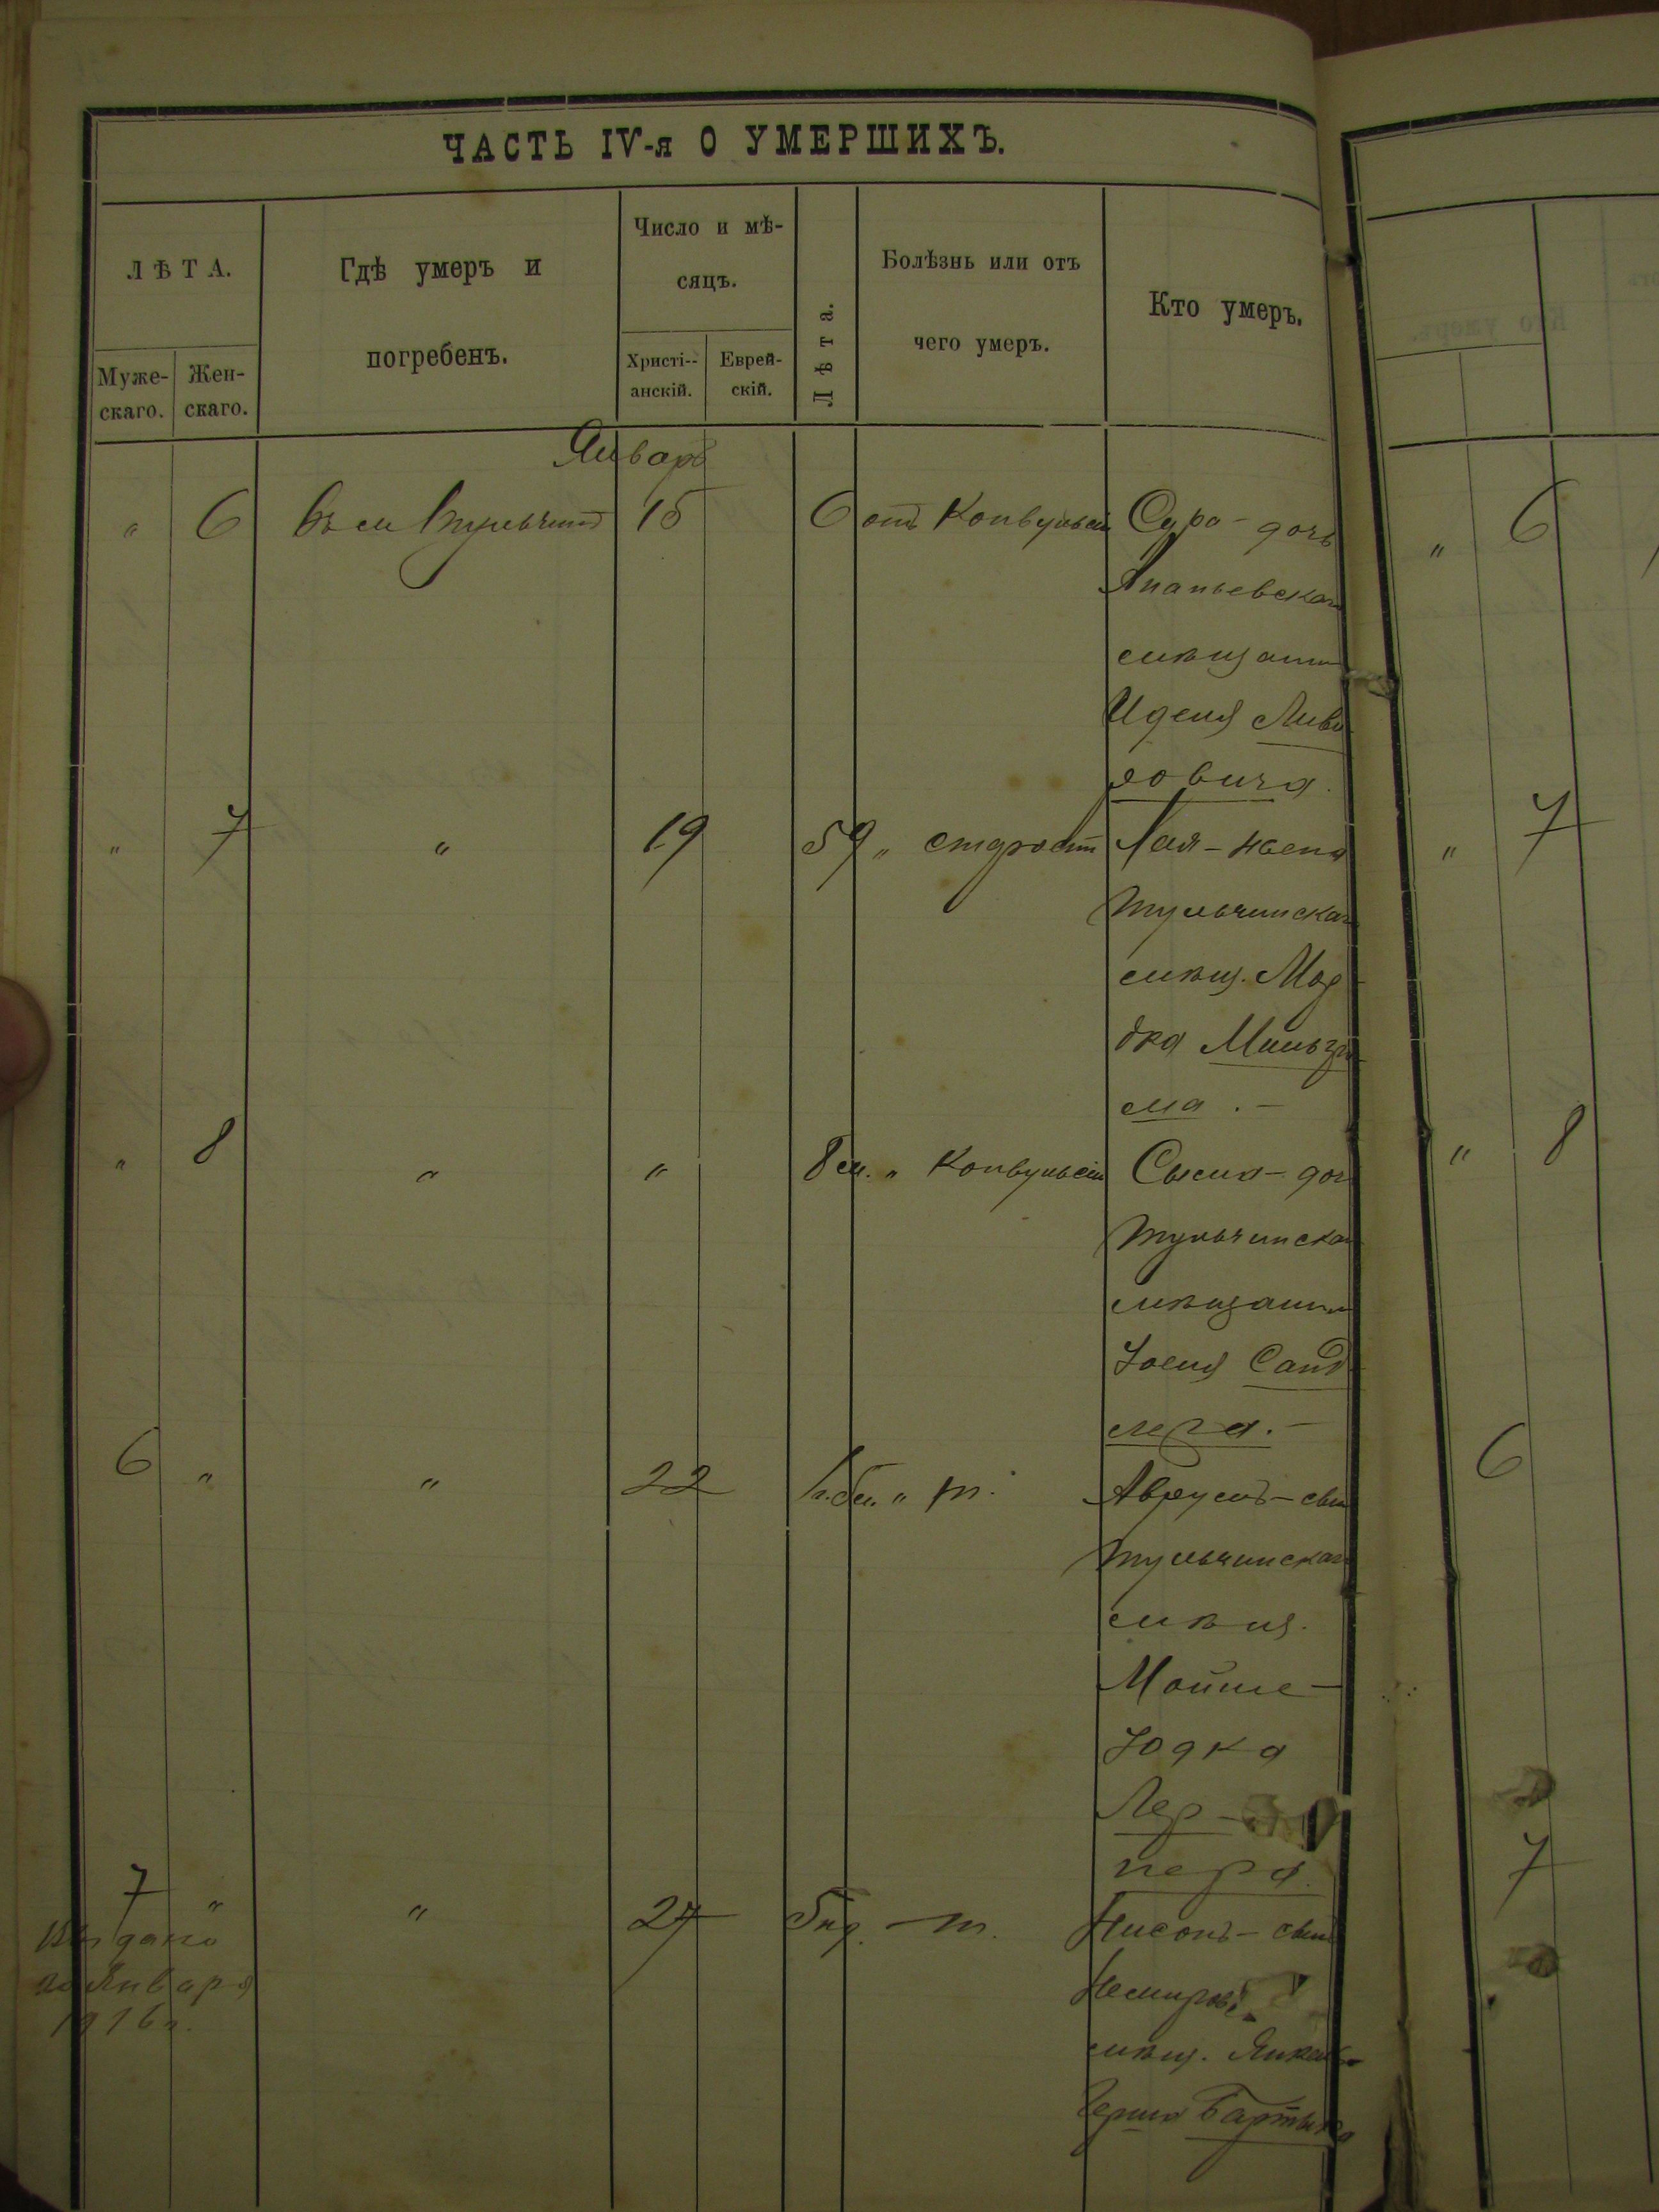 ЧАСТЬ IV-я О УМЕРШИХЪ.
ЛѢТА.
Муже-
скаго.
Жен-
скаго.
Гдѣ умеръ и
погребенъ.
Число и мѣ-
сяцъ.
Христі-
анскій.
Еврей-
скій.
Лѣта.
Болѣзнь или отъ
чего умеръ.
Кто умеръ.
Январь
" 6 въ м Тульчинѣ 15 6 отъ Конвульсій Сура - дочь
Ананьевскаго
мѣщанина
Иделя
ровича.
" 7 " 19 59 " старости Лая - жена
Тульчинскаго
мѣщ. Мор-
дка
" 8 " " 8 м. " Конвульсій Сысля - дочь
Тульчинскаго
мѣщанина
Іосля Санд-
лера. -
6 " " 22 " т. Аврумъ - сынъ
Тульчинскаго
мѣщ.
Мойше -
Іодка
Лер -
нера.
7 " " 27 т. Нисонъ - сынъ
Немировс
мѣщ. Янкель-
Герша
Выдано
Января
1916 г.
" 6
" 7
" 8
6
7